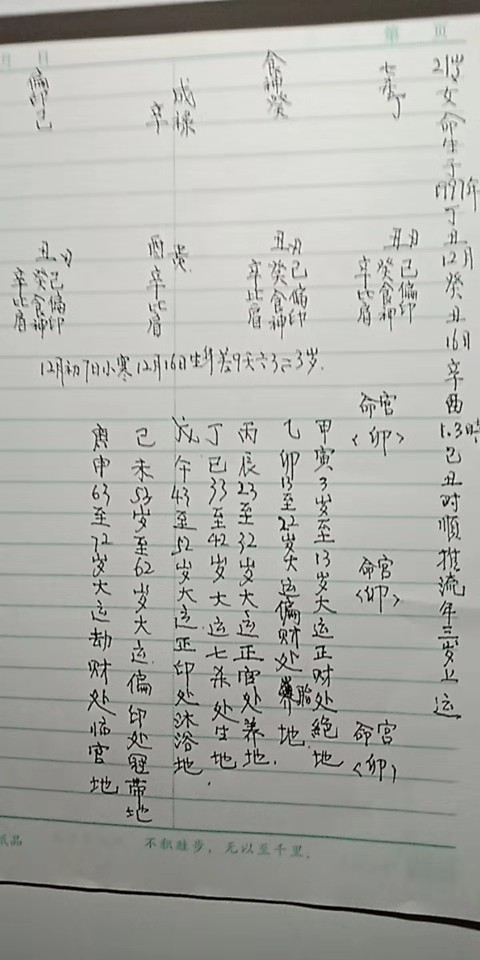 第 页
月 日
21岁女命生于1997年丁丑12月癸丑16日辛酉1.3時己丑时順推流年三岁上运
七杀丁
食神癸
辛
偏印己
丑月
己偏印
癸食神
辛比肩
丑月
己偏印
癸食神
辛比肩
酉
辛比肩
丑月
己偏印
癸食神
辛比肩
12月初7日小寒12月16日生
3岁.
命宫
<卯>
命宫
<卯>
命宫
<卯>
甲寅3岁至13岁大运正财处絶地
乙卯13至22岁大运偏财处胎地.
丙辰23至32岁大运正官处养地.
丁巳33至42岁大运七杀处生地.
戊午43至52岁大运正印处沐浴地
己未53岁至62岁大运偏印处冠带地
庚申63至72岁大运劫财处临官地
纸品
不积跬步，无以至千里。